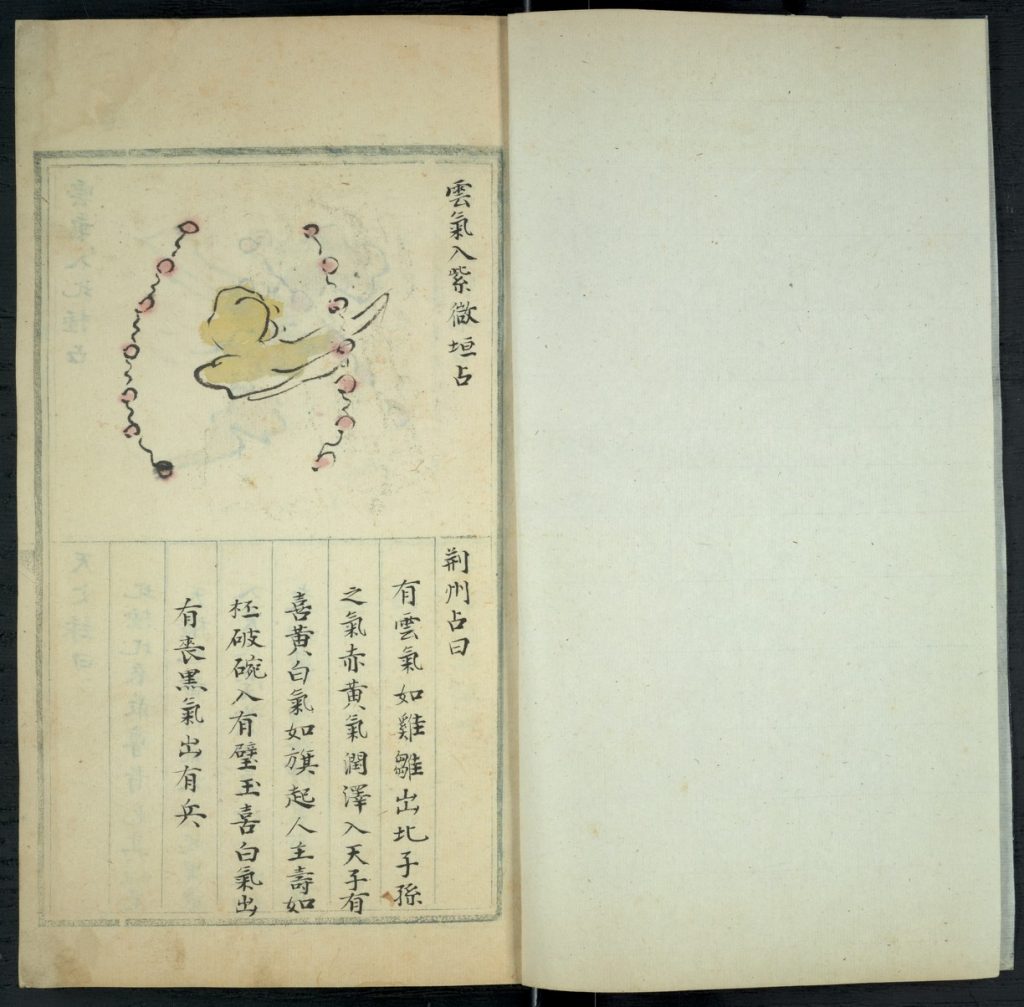 雲氣入紫微垣占
荆州占曰
有雲氣如雞雛出北子孫
之氣赤黃氣潤澤入天子有
喜黃白氣如旗起人主壽如
柸破碗入有璧玉喜白氣出
有喪黑氣出有兵